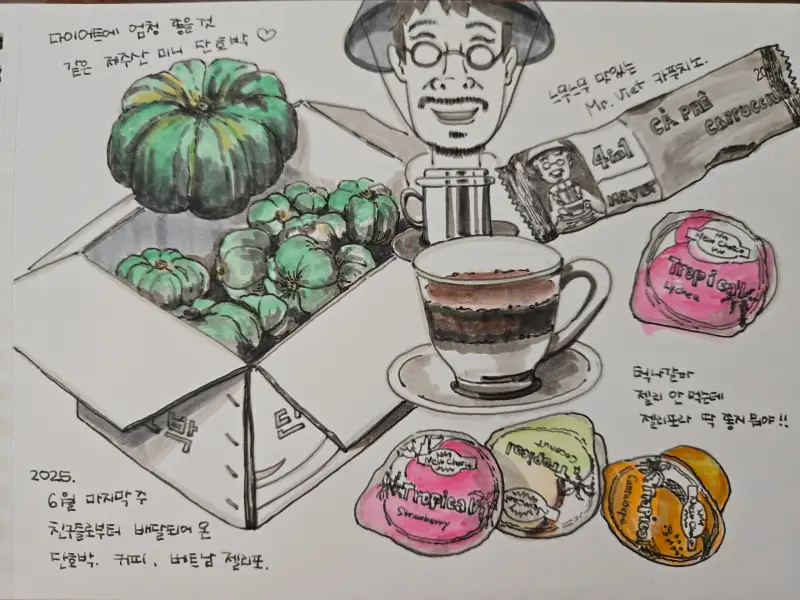 다이어트에 엄청 좋을 것
같은 제주산 미니 단호박 ♡
느무느무 맛있는
Mr. Viet 카푸치노.
20
4in1
MR.VIET
CÀ PHÊ
CAPPUCCINO
New Choice
Tropical
Lychee
턱 나갈까
젤리 안 먹는데
젤리포라 딱 좋지 뭐야!!
박
단
New Choice
Tropical
Strawberry
Tropical
Coconut
Tropical
Cantaloupe
2025.
6월 마지막 주
친구들로부터 배달되어 온
단호박. 커피, 베트남 젤리포.